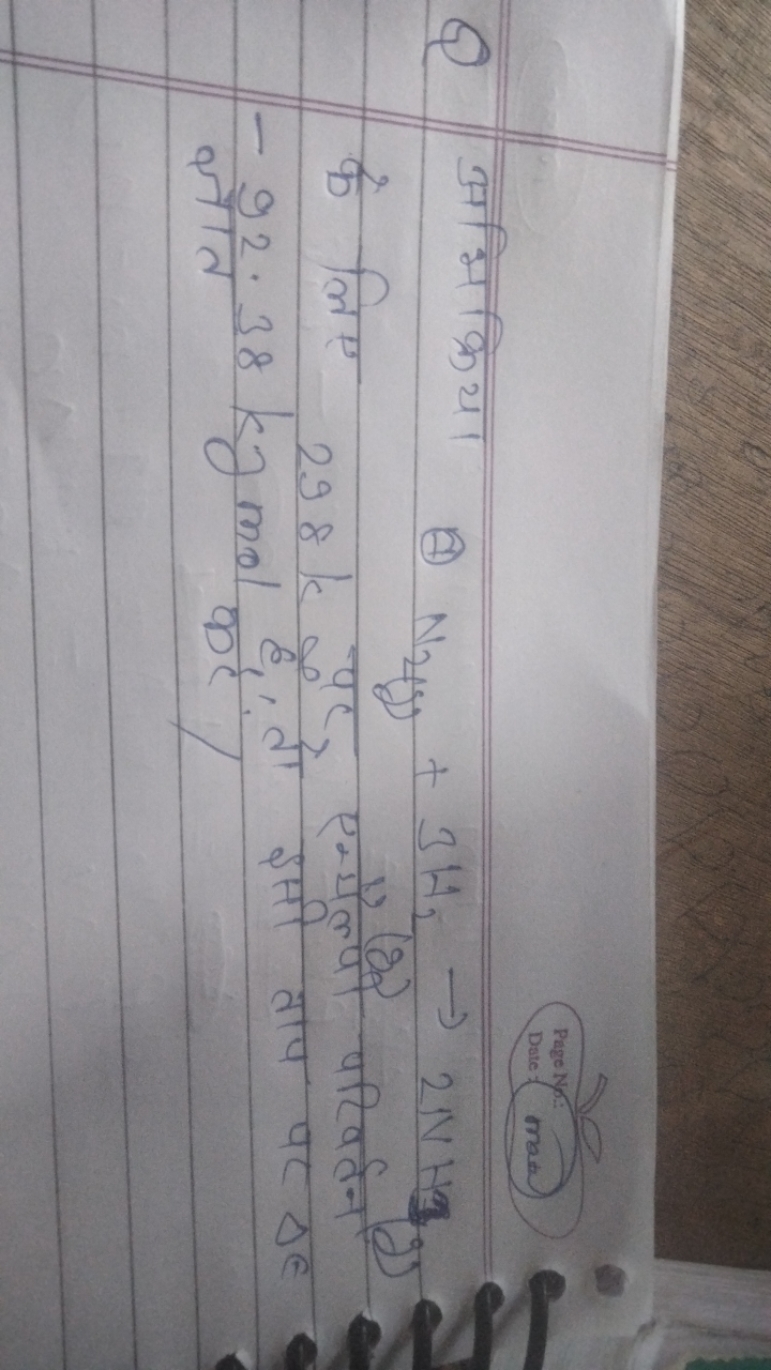 Page No.:
Date:
Q अभिक्रिया N2(g) + 3H2(g) → 2NH3(g)
के लिए 298 k पर, एन्थल्पी परिवर्तन
- 92.38 kJ mol है, तो इसी ताप पर ΔE
ज्ञात करें